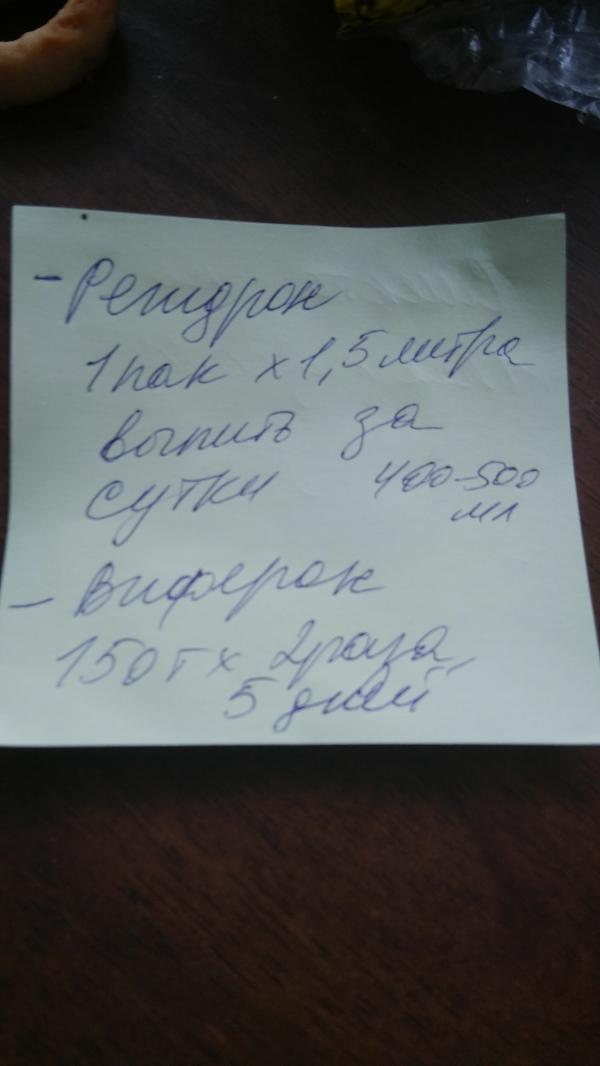 - Регидрон
1 пак х 1,5 литра
выпить за
сутки 400-500
мл
- Виферон
150 т х 2 раза,
5 дней